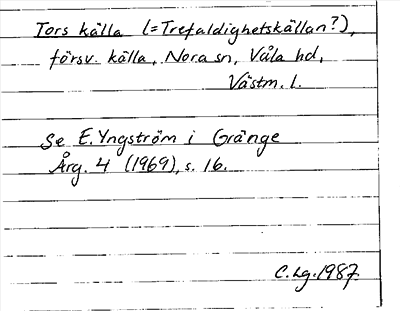 Tors källa (=Trefaldighetskällan?),
försv. källa, Nora sn, Våla hd,
Västm. l.
Se E. Yngström i Gränge
Årg. 4 (1969), s. 16.
C. Lg. 1987.